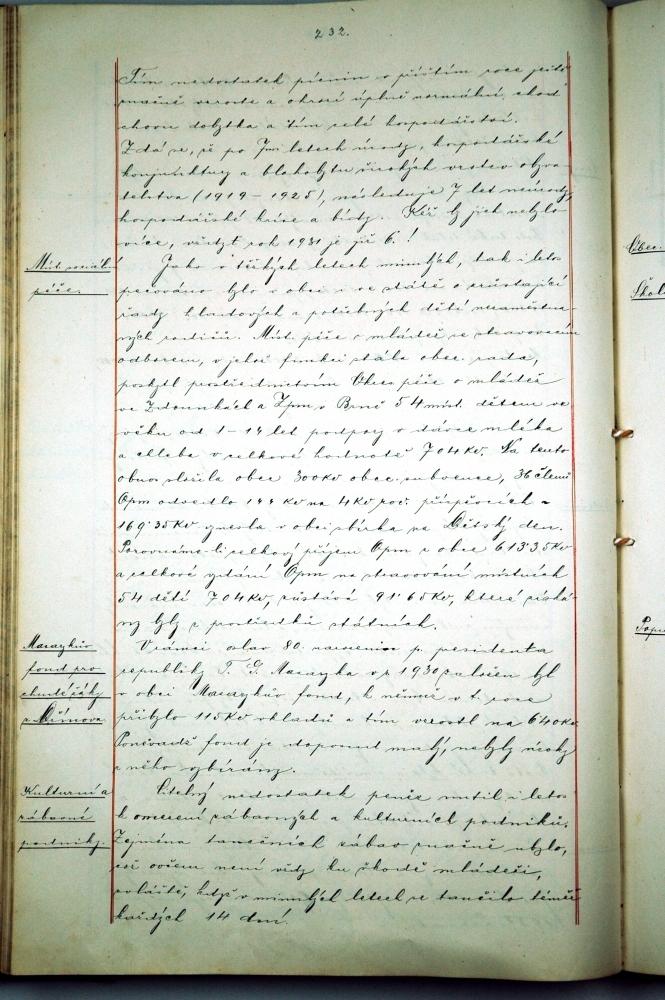 232.
Tím nedostatek pícnin v příštím roce ještě
značně vzroste a ohrozí úplně normální chod
chovu dobytka a tím celé hospodářství.
Zdá se, že po 7mi letech úrody, hospodářské
konjunktury a blahobytu širokých vrstev obyva-
telstva (1919 – 1925), následuje 7 let neúrody,
hospodářské krise a bídy. Kéž by jich nebylo
více, vždyť rok 1931 je již 6.!
Míst. sociální
péče.
Jako v těžkých letech minulých, tak i letos
pečováno bylo v obci i ve státě o vzrůstající
řady hladových a potřebných dětí nezaměstna-
ných rodičů. Míst. péče o mládež se stravovacím
odborem, v jehož funkci stála obec. rada,
poskytl prostřednictvím Okres. péče o mládež
ve Zdounkách a Zpm v Brně 54 míst. dětem ve
věku od 1–14 let podpory v dávce mléka
a chleba v celkové hodnotě 704 Kč. Na tento
obnos složila obec 300 Kč obec. subvence, 36 členů
Opm odvedlo 144 Kč na 4 Kč roč. příspěvcích a
169·35 Kč vynesla v obci sbírka na Dětský den.
Porovnáme-li celkový příjem Opm z obce 613·35 Kč
a celkové vydání Opm na stravování místních
54 dětí 704 Kč, zůstává 91·65 Kč, které získá-
ny byly z prostředků státních.
Masarykův
fond pro
chudé žáky
z Dřínova.
V rámci oslav 80. narozenin p. presidenta
republiky T. G. Masaryka v r. 1930 založen byl
v obci Masarykův fond, k němuž v t. roce
přibylo 115 Kč vkladů a tím vzrostl na 640 Kč.
Poněvadž fond je doposud malý, nebyly úroky
z něho vybírány.
Kulturní a
zábavní
podniky.
Citelný nedostatek peněz nutil i letos
k omezení zábavných a kulturních podniků.
Zejména tanečních zábav značně ubylo,
což ovšem není vždy ku škodě mládeži,
zvláště, když v minulých letech se tančilo téměř
každých 14 dní.
Obec.
Škol
Popu